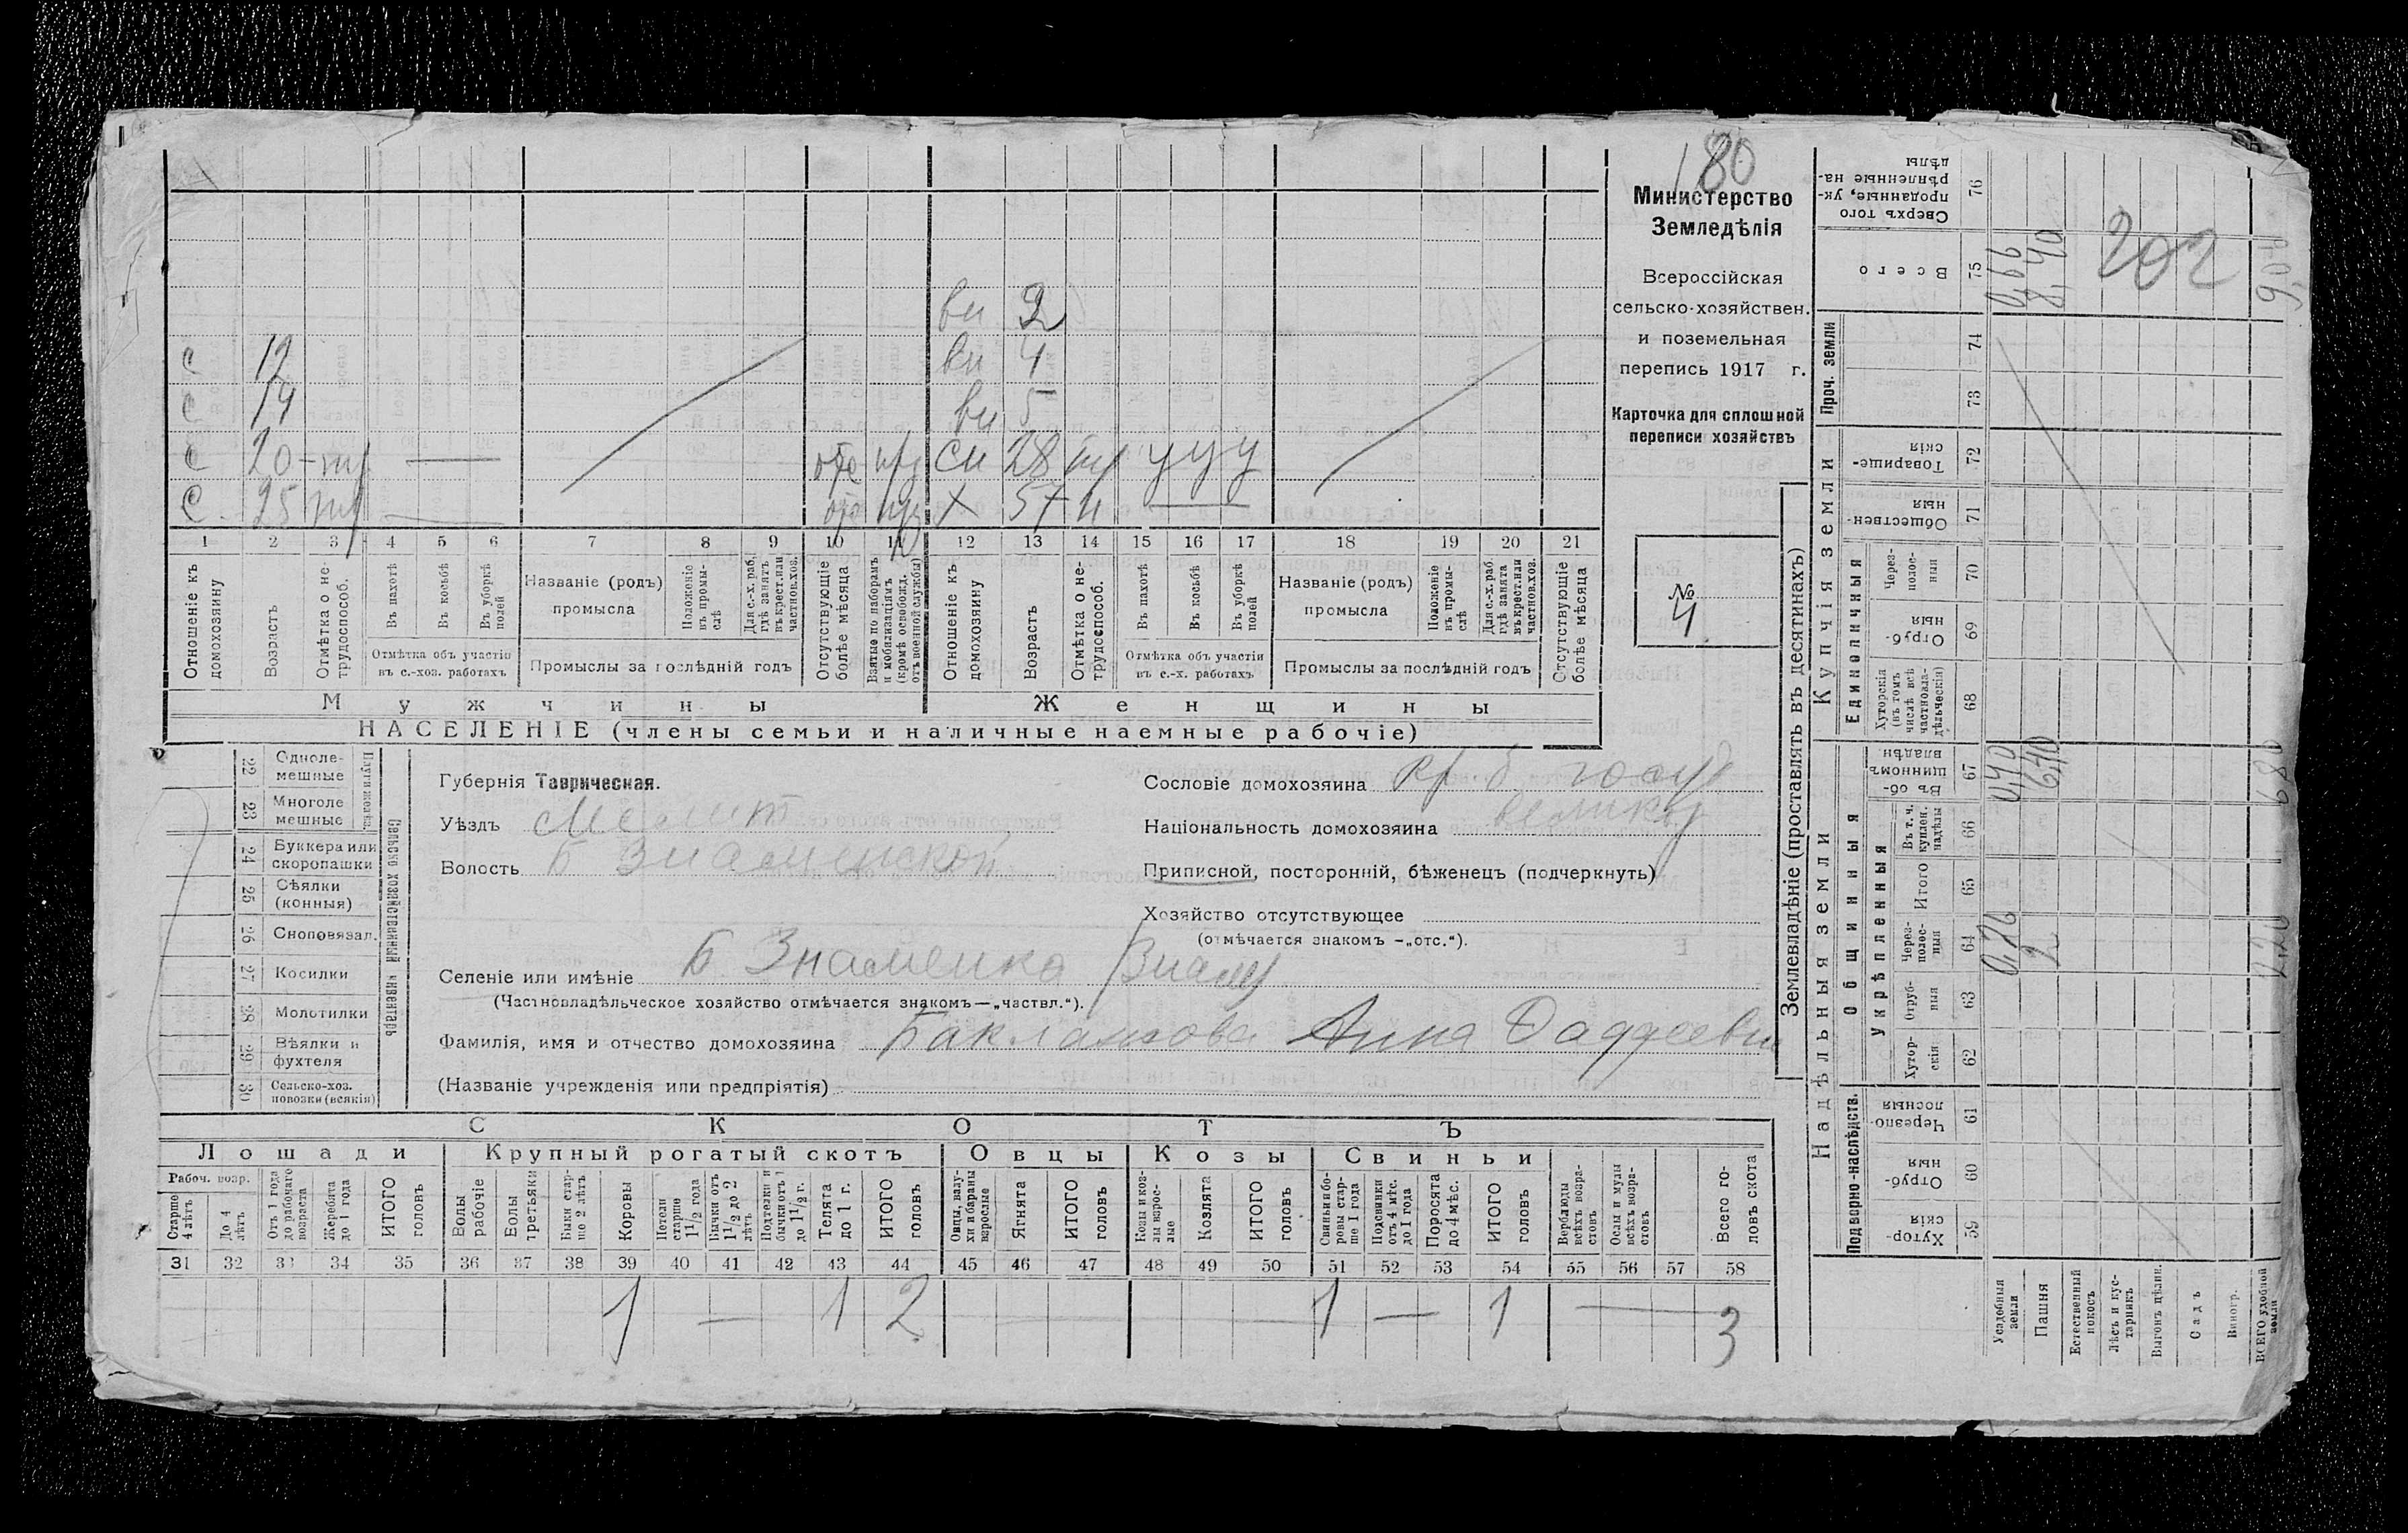 180
Министерство
Земледѣлія
Всероссійская
сельско-хозяйствен.
и поземельная
перепись 1917 г.
Карточка для сплошной
переписи хозяйствъ
№
4
ви 2
с 12 ви 4
с 14 ви 5
с 20 отс сн 28 у у у
с 25 х 57 н
1 2 3 4 5 6 7 8 9 10 11 12 13 14 15 16 17 18 19 20 21
Отношеніе къ домохозяину
Возрастъ
Отмѣтка о не-трудоспособ.
Въ пахотѣ
Въ косьбѣ
Въ уборкѣ полей
Отмѣтка объ участіи
въ с.-хоз. работахъ
Названіе (родъ)
промысла
Положеніе въ промы-слѣ
Для с.-х. раб. гдѣ занятъ въ крест. или частнов. хоз.
Промыслы за послѣдній годъ
Отсутствующіе болѣе мѣсяца
Взятые по наборамъ и мобилизаціямъ (кромѣ освобожд. отъ военной службы)
Отношеніе къ домохозяину
Возрастъ
Отмѣтка о не-трудоспособ.
Въ пахотѣ
Въ косьбѣ
Въ уборкѣ полей
Отмѣтка объ участіи
въ с.-х. работахъ
Названіе (родъ)
промысла
Положеніе въ промы-слѣ
Для с.-х. раб. гдѣ занята въ крест. или частнов. хоз.
Промыслы за послѣдній годъ
Отсутствующіе болѣе мѣсяца
Мужчины Женщины
НАСЕЛЕНІЕ (члены семьи и наличные наемные рабочіе)
22 Одноле-мешные
23 Многоле мешные
Плуги желѣз.
24 Буккера или скоропашки
25 Сѣялки (конныя)
26 Сноповязал.
27 Косилки
28 Молотилки
29 Вѣялки и фухтеля
30 Сельско-хоз. повозки (всякія)
Сельско хозяйственный инвентарь
Губернія Таврическая.
Уѣздъ Мелит
Волость Б Знаменской
Селеніе или имѣніе Б Знаменка Знам
(Частновладѣльческое хозяйство отмѣчается знакомъ—„частвл.“).
Фамилія, имя и отчество домохозяина Бакланова Анна Фаддеевн
(Названіе учрежденія или предпріятія)
Сословіе домохозяина кр. б. госуд
Національность домохозяина великор
Приписной, посторонній, бѣженецъ (подчеркнуть)
Хозяйство отсутствующее
(отмѣчается знакомъ -„отс.“).
СКОТЪ
Лошади Крупный рогатый скотъ Овцы Козы Свиньи
Рабоч. возр.
Старше 4 лѣтъ
До 4 лѣтъ
Отъ 1 года до рабочаго возраста
Жеребята до 1 года
ИТОГО головъ
Волы рабочіе
Волы третьяки
Быки стар-ше 2 лѣтъ
Коровы
Нетели старше 1 1/2 года
Бычки отъ 1 1/2 до 2 лѣтъ
Подтелки и бычки отъ 1 до 1 1/2 г.
Телята до 1 г.
ИТОГО головъ
Овцы, валу-хи и бараны взрослые
Ягнята
ИТОГО головъ
Козы и коз-лы взрос-лые
Козлята
ИТОГО головъ
Свиньи и бо-ровы стар-ше 1 года
Подсвинки отъ 4 мѣс. до 1 года
Поросята до 4 мѣс.
ИТОГО головъ
Верблюды всѣхъ возра-стовъ
Ослы и мулы всѣхъ возра-стовъ
Всего го-ловъ скота
31 32 33 34 35 36 37 38 39 40 41 42 43 44 45 46 47 48 49 50 51 52 53 54 55 56 57 58
1 — 1 2 1 — 1 — 3
Землевладѣніе (проставлять въ десятинахъ)
Надѣльныя земли
Купчія земли
Проч. земли
Подворно-наслѣдств.
Общинныя
Укрѣпленныя
Единоличныя
Хутор-скія 59
Отруб-ныя 60
Черезпо-лосныя 61
Хутор-скія 62
Отруб-ныя 63
Через-полос-ныя 64
Итого 65
Въ т. ч. куплен. надѣлы 66
Въ об-щинномъ владѣн. 67
Хуторскія (въ томъ числѣ всѣ частновла-дѣльческія) 68
Отруб-ныя 69
Через-полос-ныя 70
Обществен-ныя 71
Товарище-скія 72
73
74
Всего 75
Сверхъ того проданные, ук-рѣпленные на-дѣлы 76
Усадебныя земли 0,40 0,66
Пашня 2 8,40
Естественный покосъ
Лѣсъ и кус-тарникъ
Выгонъ цѣлин.
Садъ
Виногр.
ВСЕГО удобной земли 6,80 9,06
202